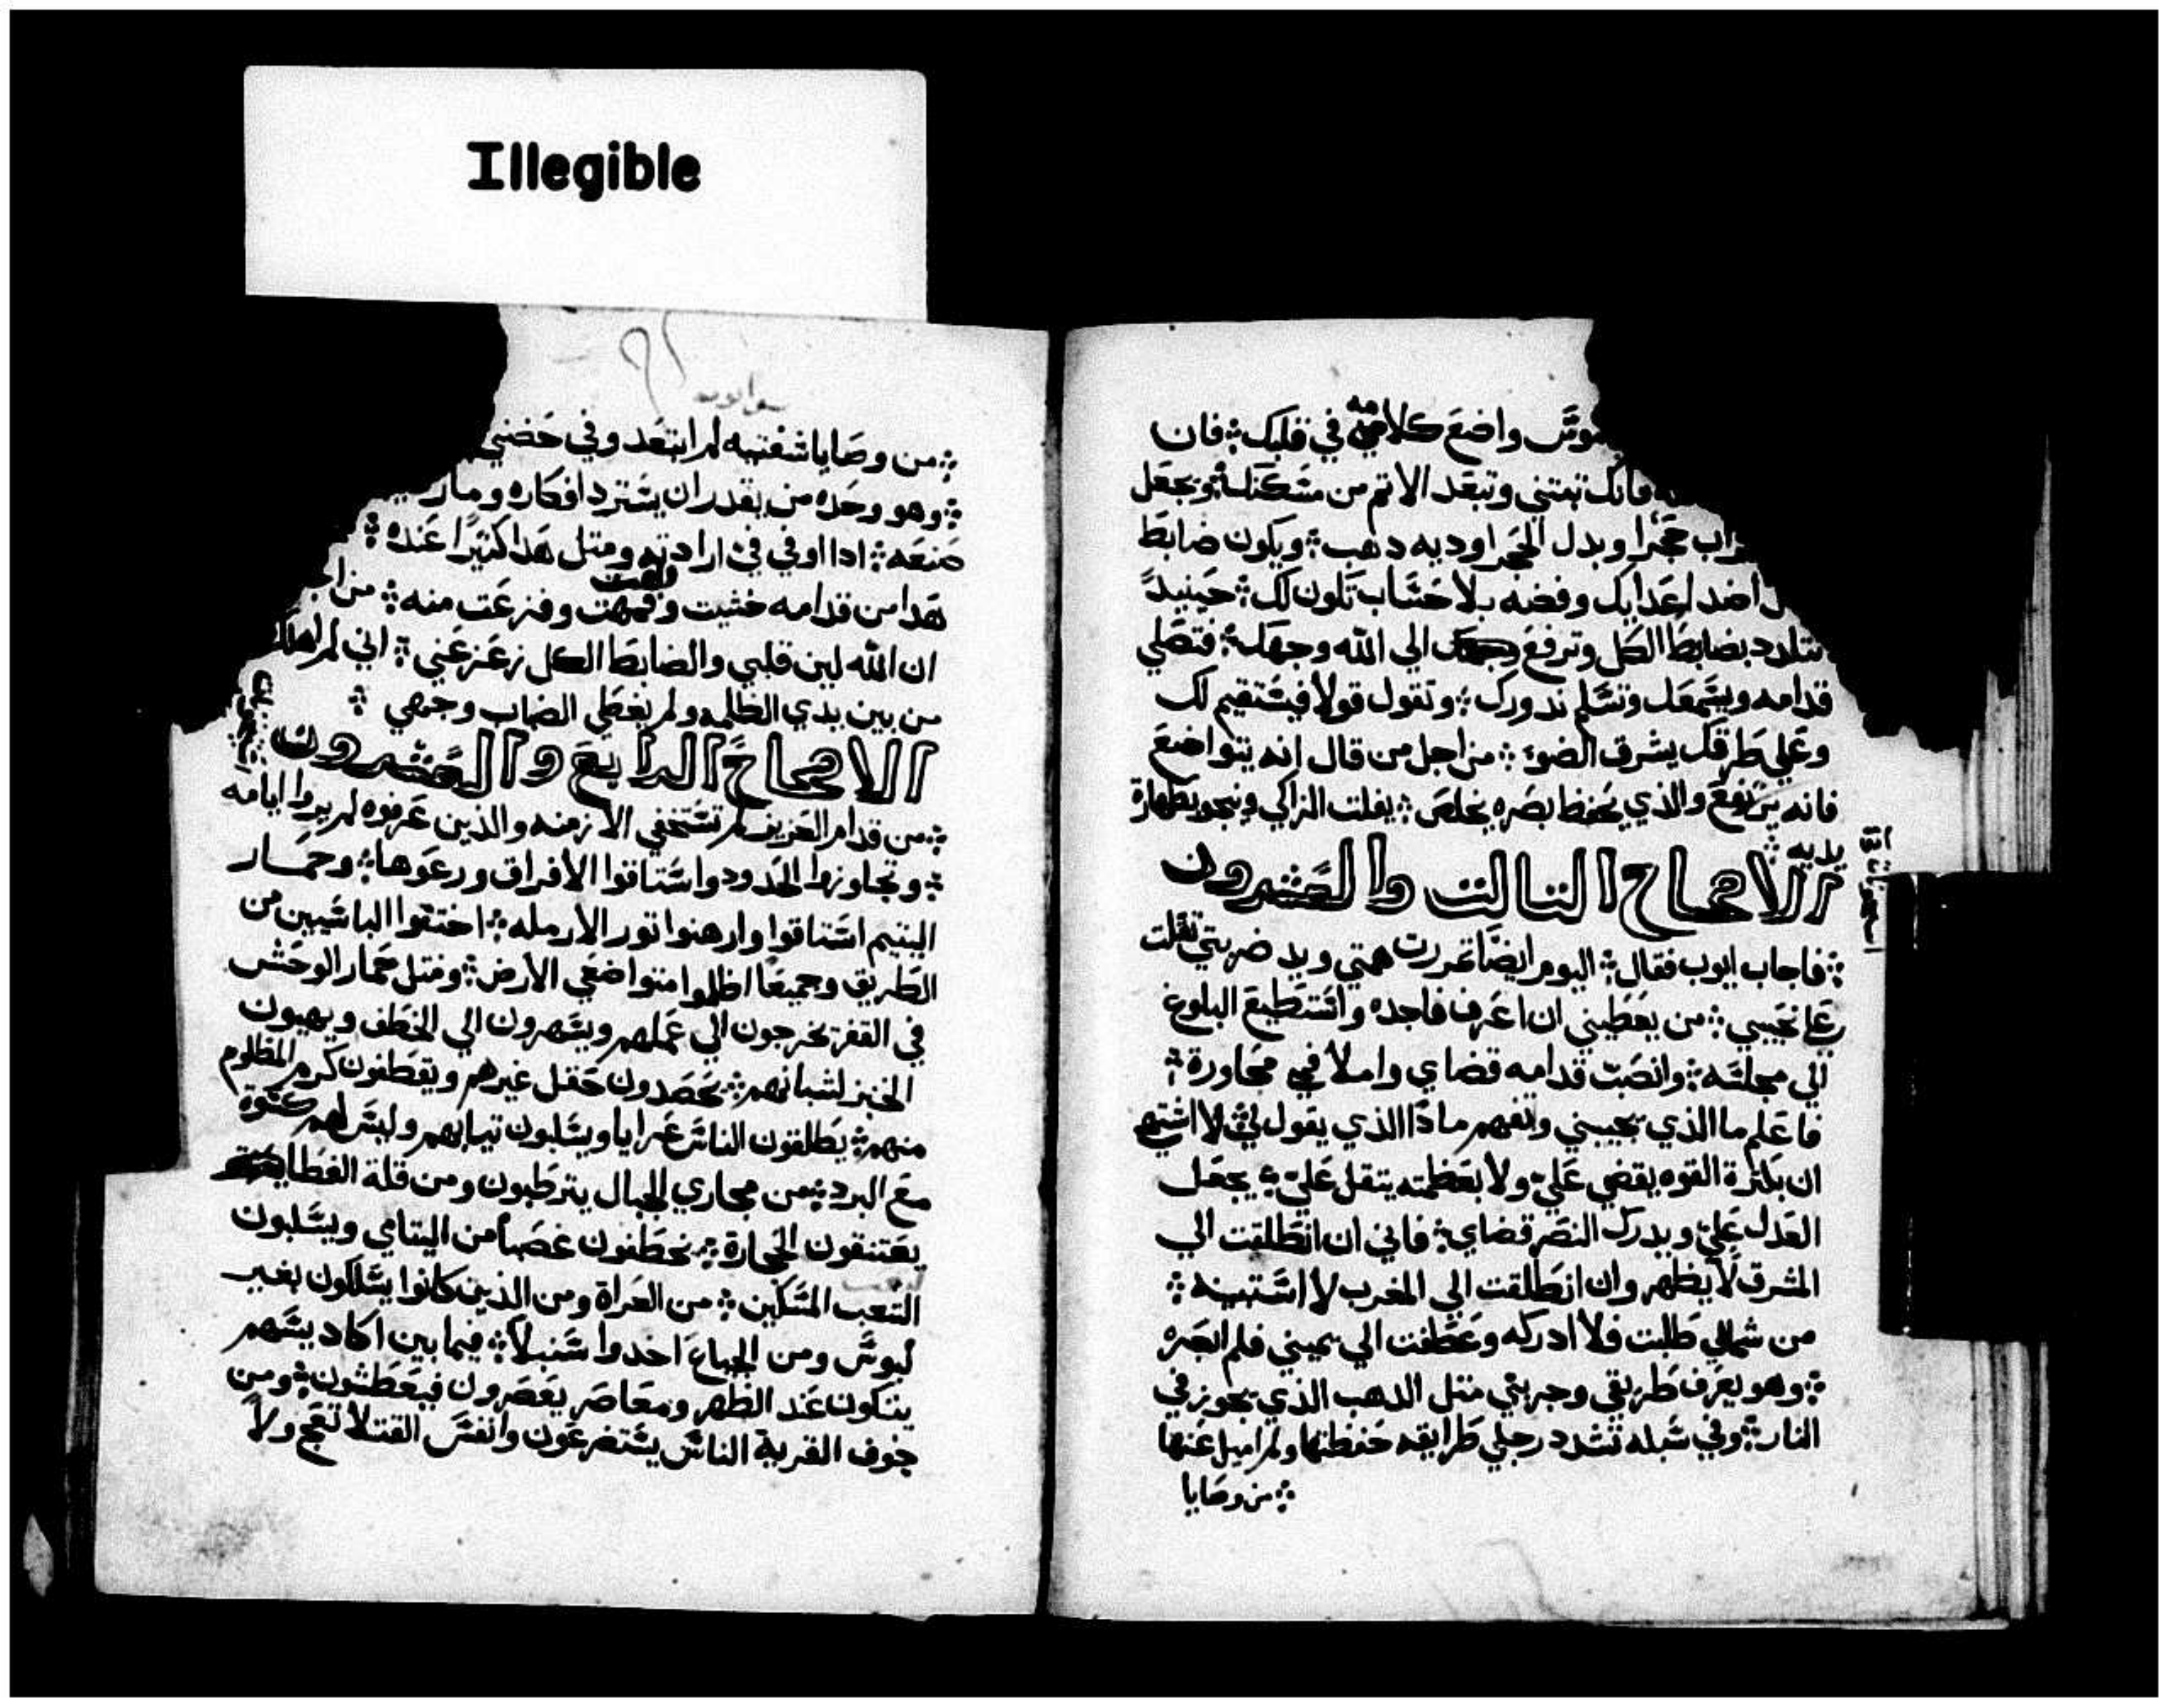 Illegible
واضع كلامه في قلبك ؛ فان
فانك تبتني وتبعد الاتم من مسكنك ؛ وتجعل
حجرا وبدل الحجر اوديه دهب ؛ ويكون ضابط
اضد اعدايك وفضه بلا حساب تكون لك ؛ حينيدً
تتلدد بضابط الكل وترفع الي الله وجهك ؛ فتصلي
قدامه ويسمعك وتسلم ندورك ؛ وتقول قولا فيستقيم لك
وعلي طرقك يشرق الضوء ؛ من اجل من قال انه يتواضع
فانه يرتفع والذي يحفظ بصره يخلص ؛ يفلت الزاكي وينجو بطهارة
يديه ؛
الاصحاح التالت والعشرون
؛ فاجاب ايوب فقال ؛ اليوم ايضًا تمررت همتي ويد ضربتي تقلت
علي نحيبي ؛ من يعطيني ان اعرف فاجده واستطيع البلوغ
الي مجلسه ؛ وانصبت قدامه قضاي واملا في محاورة ؛
فاعلم ما الذي يجيبني وافهم مادا الذي يقول لي ؛ لا اشتهي
ان بكترة القوه يقضي علي ؛ ولا بعظمته يتقل علي ؛ يجعل
العدل علي ؛ ويدرك النصر قضاي ؛ فاني ان انطلقت الي
المشرق لا يظهر وان انطلقت الي المغرب لا استبينه ؛
من شمالي طلبت فلا ادركه وعطفت الي يميني فلم ابصره
؛ وهو يعرف طريقي وجربني متل الدهب الذي يجوز في
النار ؛ وفي سبله تشدد رجلي طرايقه حفظتها ولم اميل عنها
؛ من وصايا
؛ من وصايا شفتيه لم ابتعد وفي حضني
؛ وهو وحده من يقدر ان يسترد افكاره وما
صنعه ؛ ادا اوفي في ارادته ومتل هدا كتيرًا عنده ؛
هدا من قدامه خشيت وفهمت وفزعت منه ؛ من
ان الله لين قلبي والضابط الكل زعزعني ؛ اني لم اهلك
من بين يدي الظلمه ولم يغطي الضباب وجهي ؛
الاصحاح الرابع والعشرون
؛ من قدام العزيز لم تستخفي الازمنه والذين عرفوه لم يروا ايامه
؛ وتجاوزوا الحدود واستاقوا الافراق ورعوها ؛ وحمار
اليتيم استاقوا وارهنوا تور الارمله ؛ اختقوا البايسين من
الطريق وجميعًا اظلوا متواضعي الارض ؛ ومتل حمار الوحش
في القفر يخرجون الي عملهم ويسهرون الي الخطف ويهيون
الخبز لشبانهم ؛ يحصدون حقل غيرهم ويقطفون كرم المظلوم
منهم ؛ يطلقون الناس عرايا ويسلبون تيابهم وليس لهم كسوة
مع البرد ؛ من مجاري الجبال يترطبون ومن قلة الغطا
يعتنقون الحجارة ؛ يخطفون غصبًا من اليتامي ويسلبون
الشعب المسكين ؛ من العراة ومن الذين كانوا يسلكون بغير
لبوس ومن الجياع اخدوا سنبلاً ؛ فيما بين اكاديسهم
يتكون عند الظهر ومعاصر يعصرون فيعطشون ؛ ومن
جوف القرية الناس يستضرعون وانفس القتلا تعج ولا